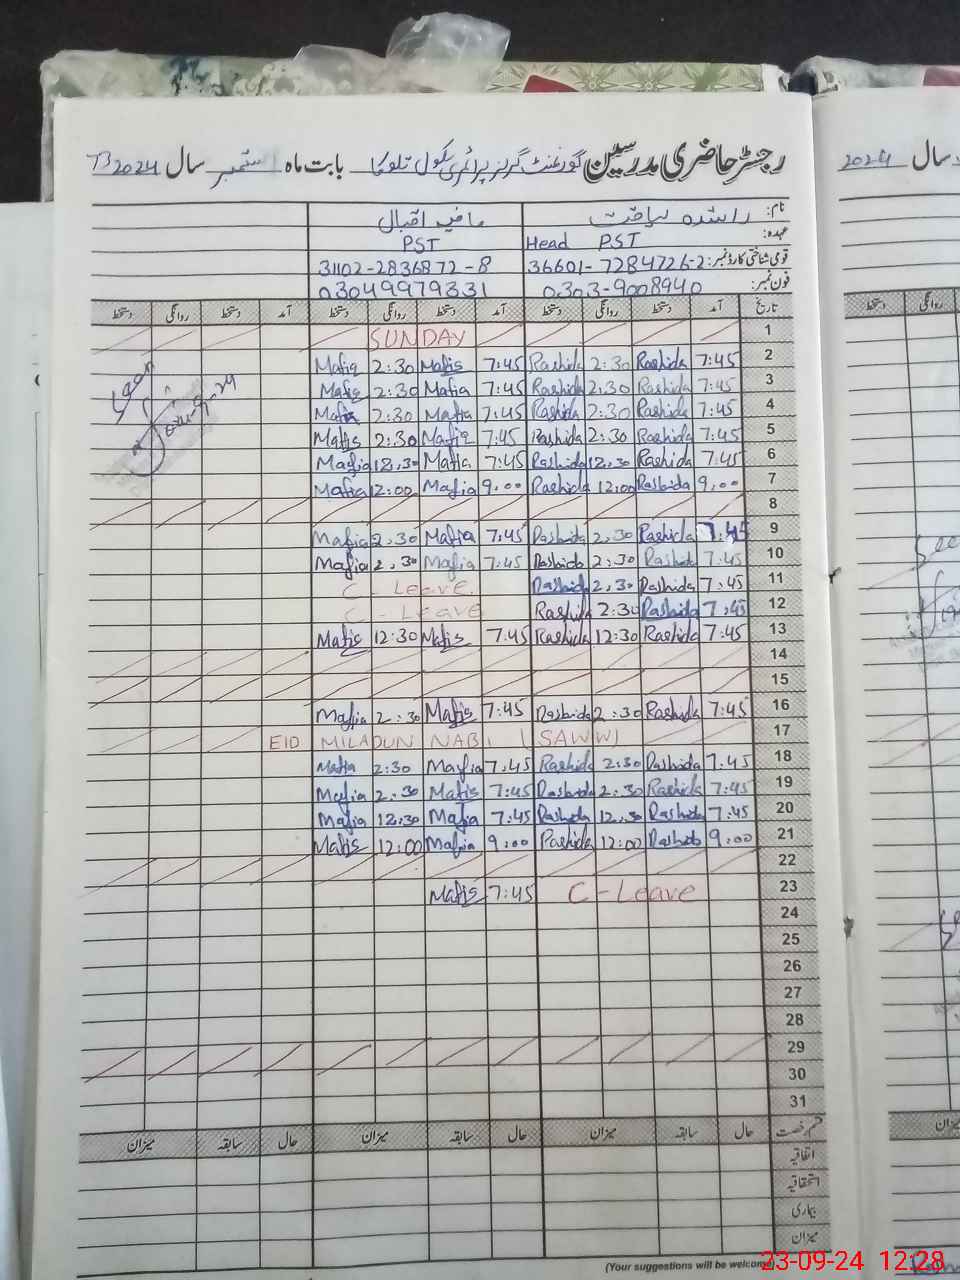 رجسٹر حاضری مدرسین گورنمنٹ گرلز پرائمری سکول تلوکا بابت ماہ ستمبر سال 2024
نام: راشدہ لیاقت مافیہ اقبال
عہدہ: Head PST PST
قومی شناختی کارڈ نمبر: 36601-7284726-2 31102-2836872-8
فون نمبر: 0303-9008940 03049979331
تاریخ آمد دستخط روانگی دستخط آمد دستخط روانگی دستخط آمد دستخط روانگی دستخط
1 SUNDAY
2 7:45 Rashida 2:30 Rashida 7:45 Mafia 2:30 Mafia
3 7:45 Rashida 2:30 Rashida 7:45 Mafia 2:30 Mafia
4 7:45 Rashida 2:30 Rashida 7:45 Mafia 2:30 Mafia
5 7:45 Rashida 2:30 Rashida 7:45 Mafia 2:30 Mafia
6 7:45 Rashida 12:30 Rashida 7:45 Mafia 12:30 Mafia
7 9:00 Rashida 12:00 Rashida 9:00 Mafia 12:00 Mafia
8
9 7:45 Rashida 2:30 Rashida 7:45 Mafia 2:30 Mafia
10 7:45 Rashida 2:30 Rashida 7:45 Mafia 2:30 Mafia
11 7:45 Rashida 2:30 Rashida C - Leave
12 7:45 Rashida 2:30 Rashida C - Leave
13 7:45 Rashida 12:30 Rashida 7:45 Mafia 12:30 Mafia
14
15
16 7:45 Rashida 2:30 Rashida 7:45 Mafia 2:30 Mafia
17 EID MILADUN NABI (SAWW)
18 7:45 Rashida 2:30 Rashida 7:45 Mafia 2:30 Mafia
19 7:45 Rashida 2:30 Rashida 7:45 Mafia 2:30 Mafia
20 7:45 Rashida 12:30 Rashida 7:45 Mafia 12:30 Mafia
21 9:00 Rashida 12:00 Rashida 9:00 Mafia 12:00 Mafia
22
23 C - Leave 7:45 Mafia
24
25
26
27
28
29
30
31
قسم رخصت حال سابقہ میزان حال سابقہ میزان حال سابقہ میزان
اتفاقیہ
استحقاقیہ
بیماری
میزان
(Your suggestions will be welcome)
23-09-24 12:28
سال 2024
روانگی دستخط